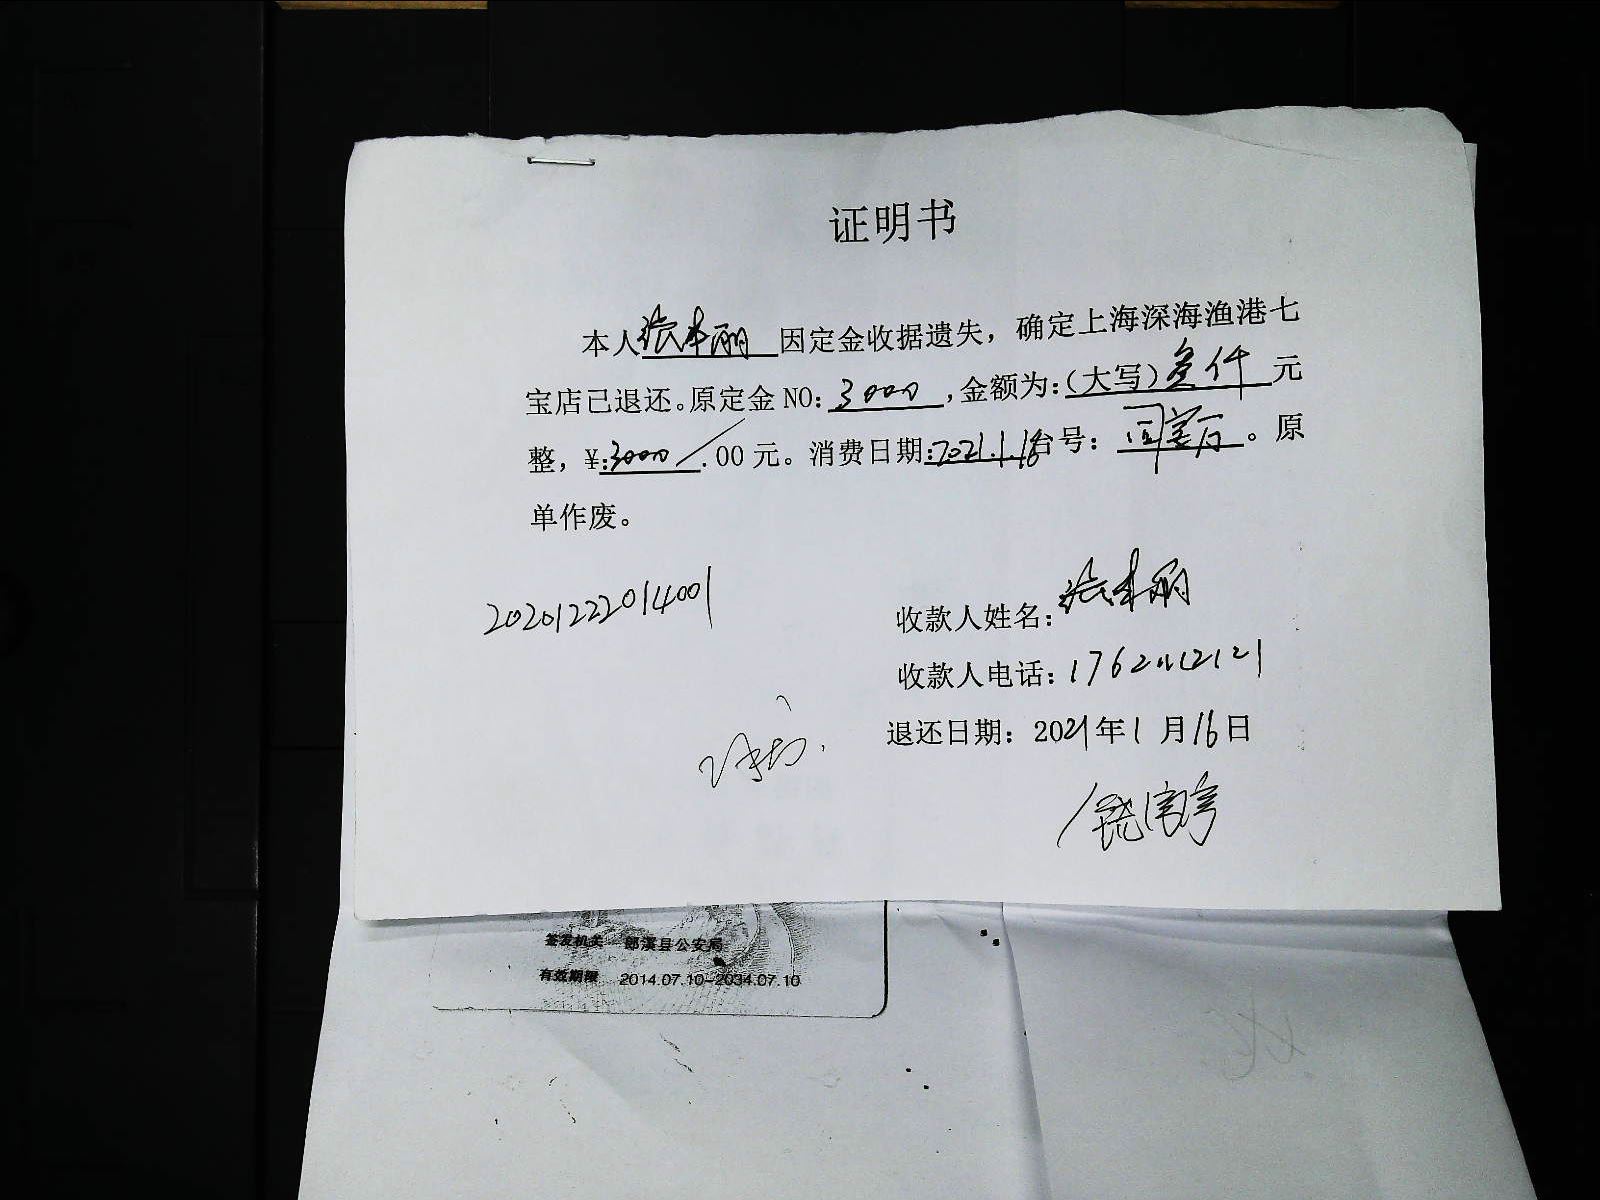 证明书
本人张本丽因定金收据遗失，确定上海深海渔港七
宝店已退还。原定金NO:3000，金额为:(大写)叁仟元
整，¥:3000.00元。消费日期:2021.1.16台号：。原
单作废。
20201222014001
收款人姓名:张本丽
收款人电话:
退还日期：2021年1月16日
签发机关 郎溪县公安局
有效期限 2014.07.10-2034.07.10